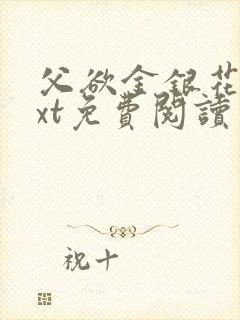 父欲金銀花
xt免費閱讀
祝十